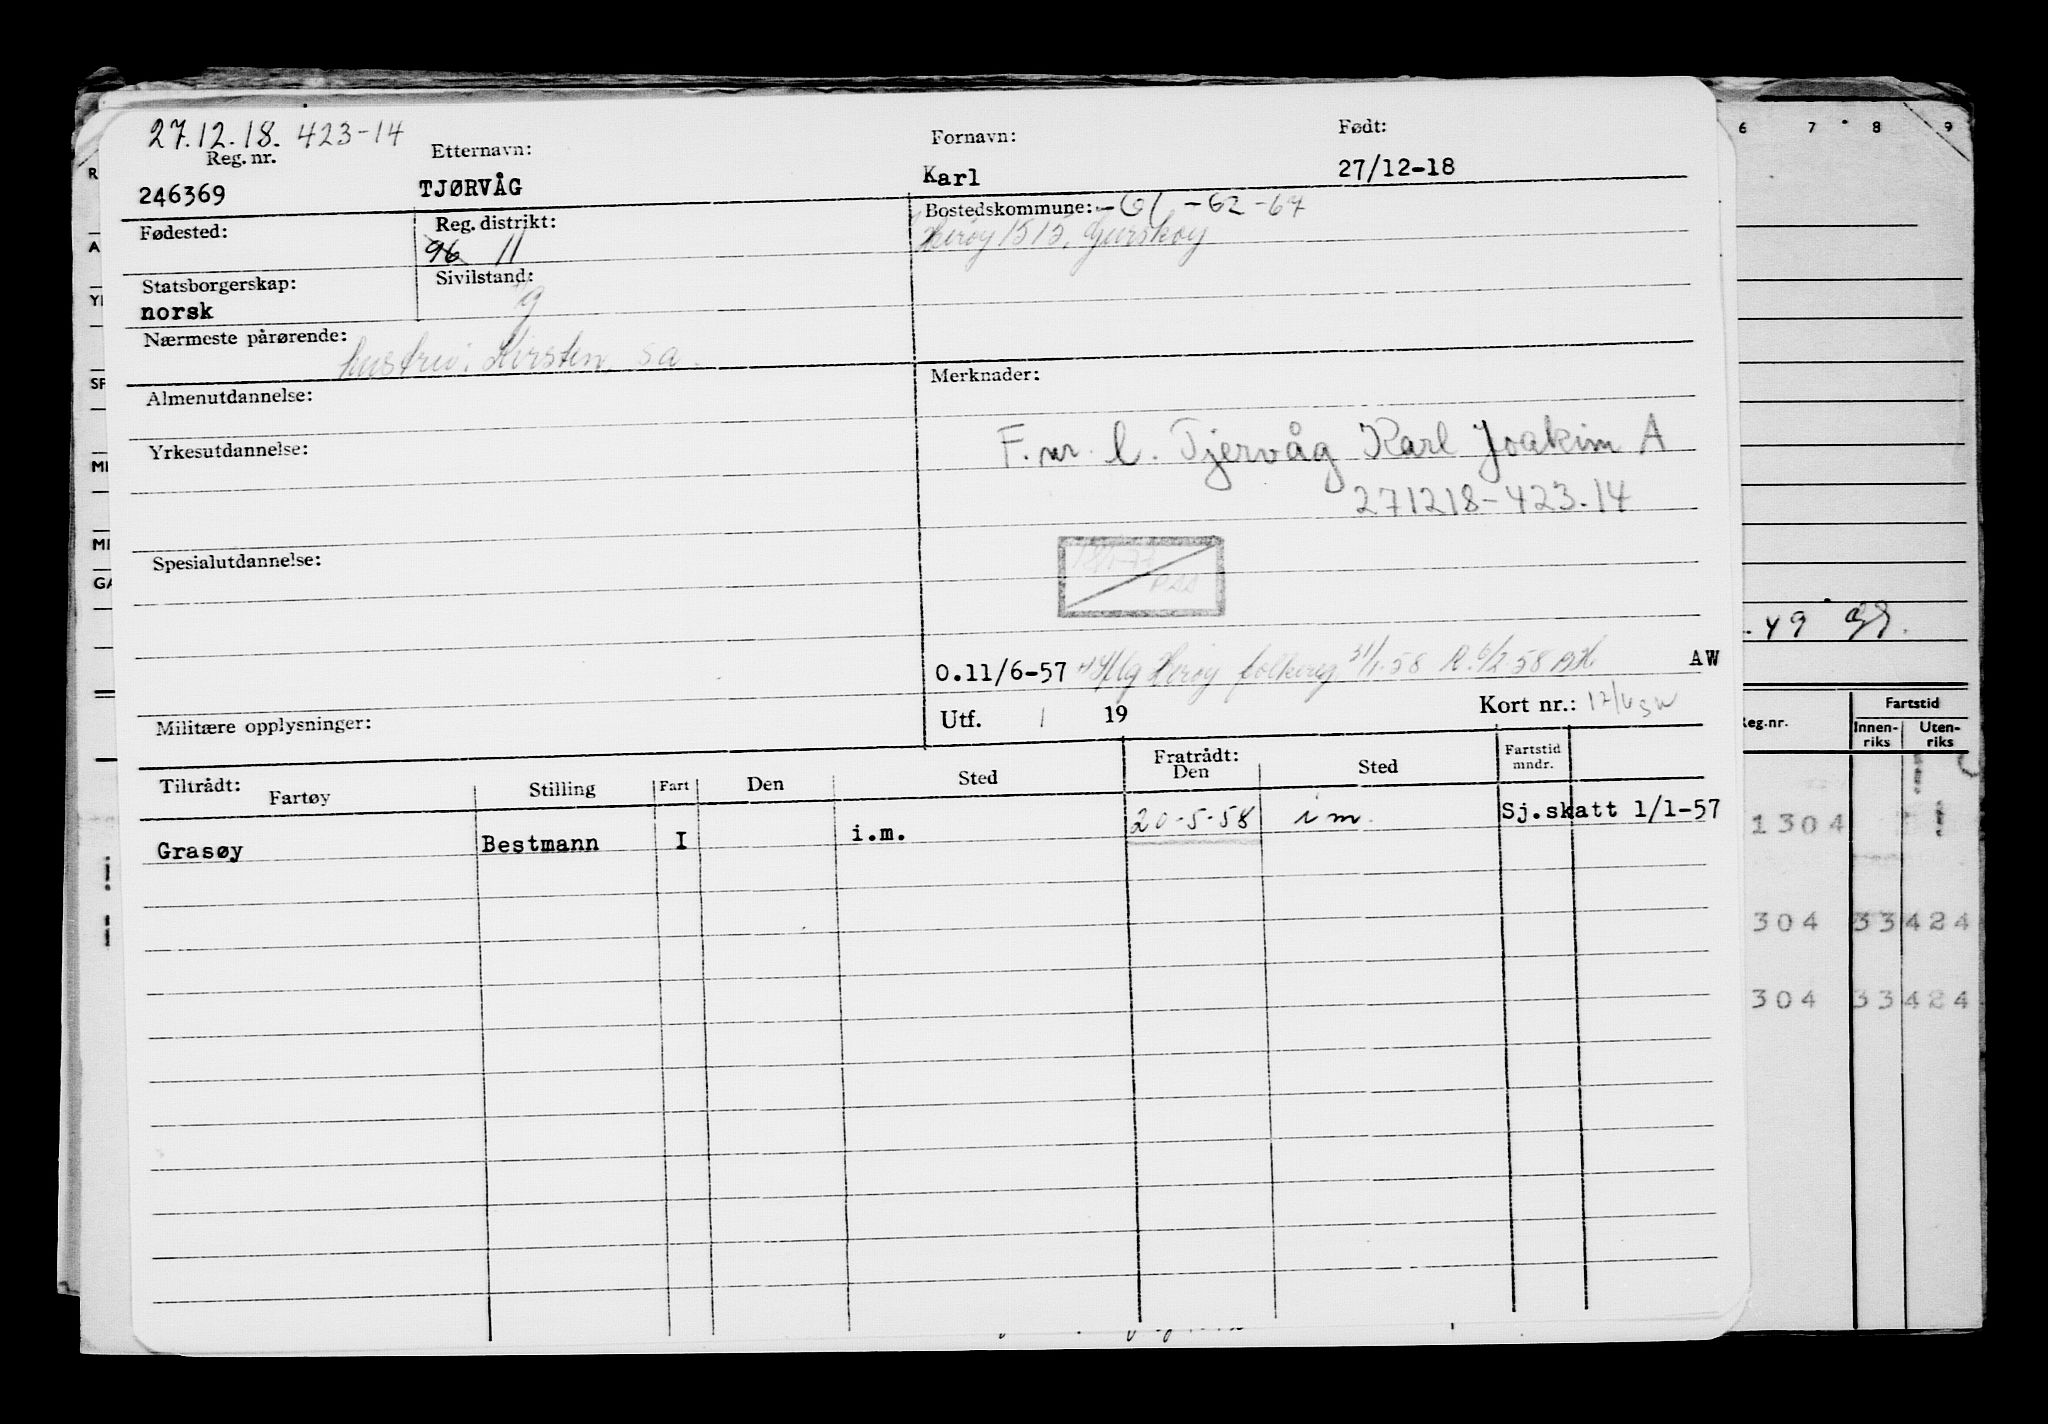 27.12.18. 423-14
Reg. nr. Etternavn: Fornavn: Født:
246369 TJØRVÅG Karl 27/12-18
Fødested: Reg. distrikt: Bostedskommune: -61 -62 -67
96 11 Herøy 1515, Gurskøy
Statsborgerskap: Sivilstand:
norsk g
Nærmeste pårørende: hustru: Kirsten, sa.
Almenutdannelse: Merknader:
Yrkesutdannelse: F. nr. l. Tjervåg Karl Joakim A
271218-423.14
Spesialutdannelse:
O.11/6-57 Herøy folkereg 31/1-58 R. 6/2-58 AW
Militære opplysninger: Utf. 1 19 Kort nr.:
Tiltrådt: Fratrådt:
Fartøy Stilling Fart Den Sted Den Sted Fartstid mndr.
Grasøy Bestmann I i.m. 20-5-58 i m. Sj.skatt 1/1-57
6 7 8 9
R
A
SP
MI
MI
GA
. 49
Reg.nr. Fartstid
Innen-riks Uten-riks
1304
304 33 424
304 33 424